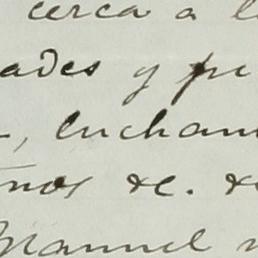 cerca a l
ades y pe
, luchan
nos &c. &
Manuel